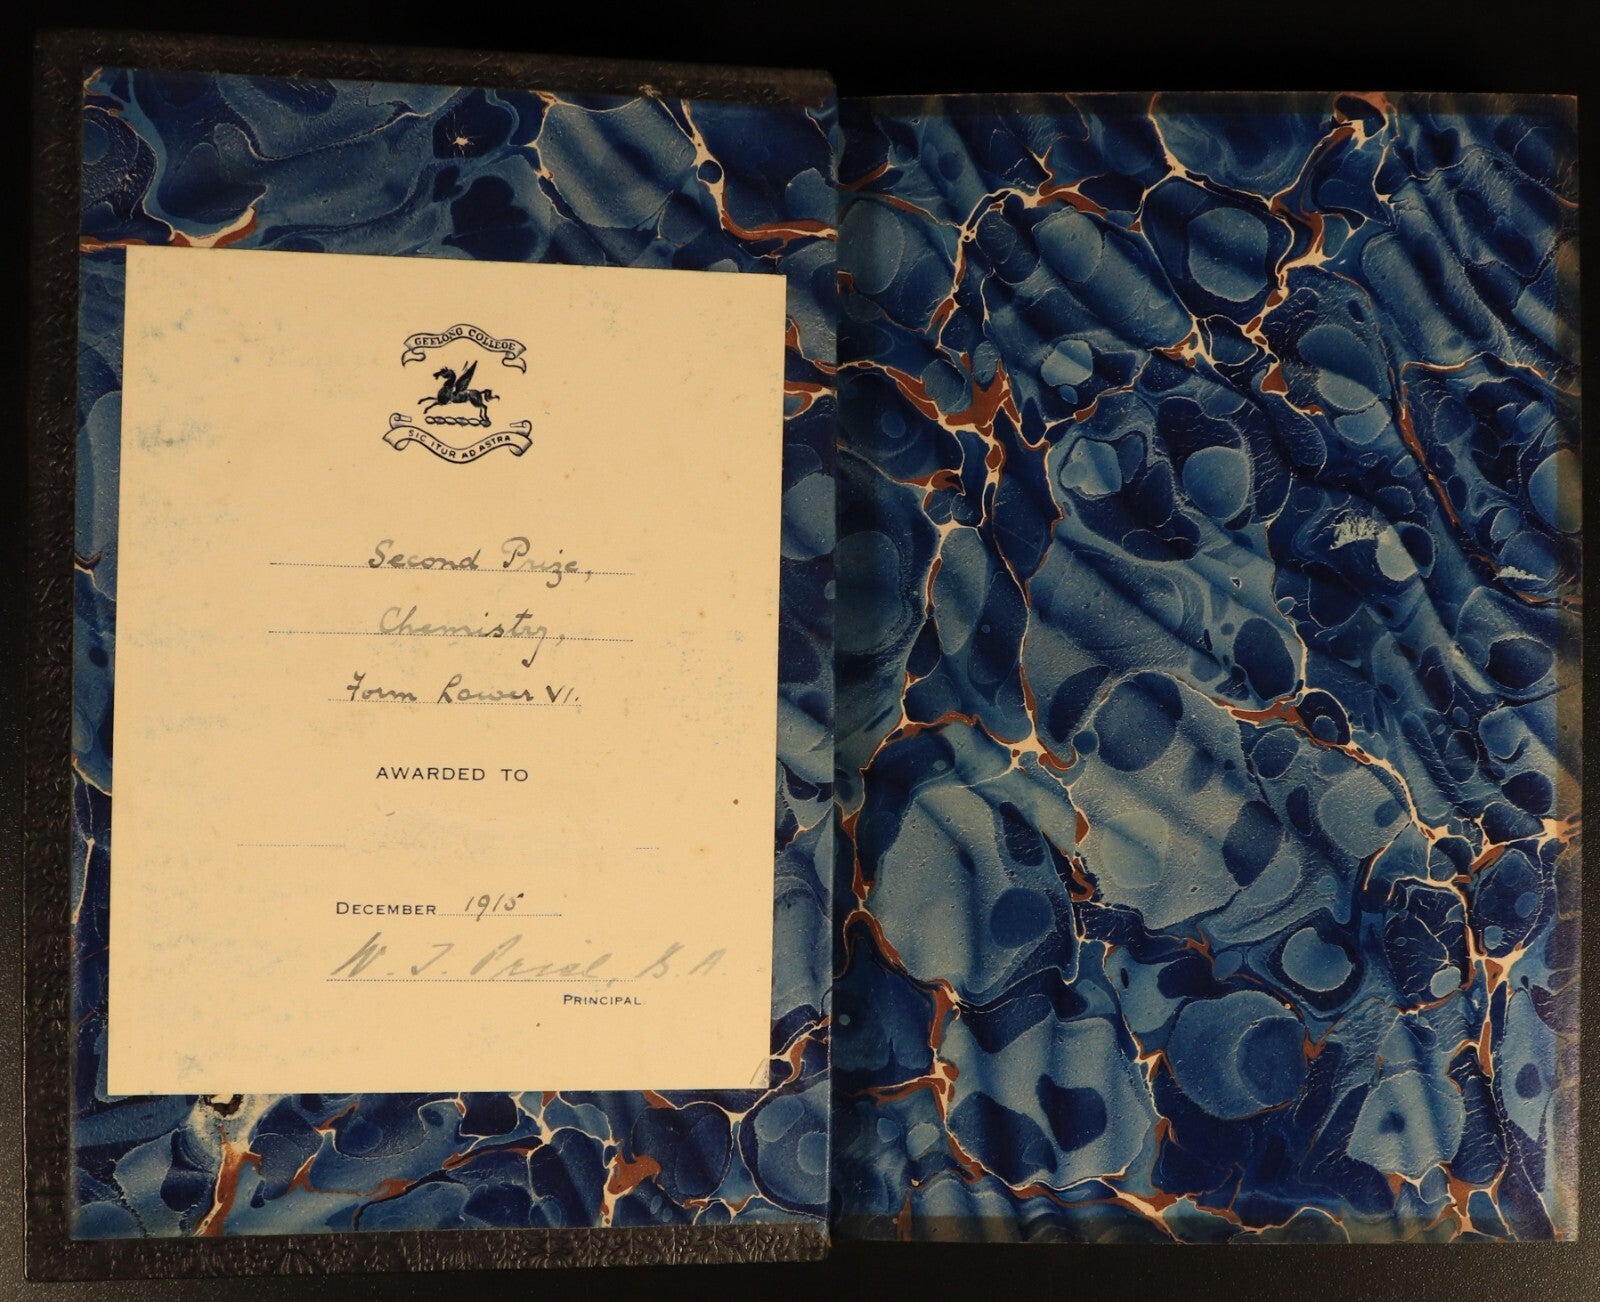 GEELONG COLLEGE
SIC ITUR AD ASTRA
Second Prize,
Chemistry,
Form Lower VI.
AWARDED TO
DECEMBER 1915
W. T. Price, B.A.
PRINCIPAL.